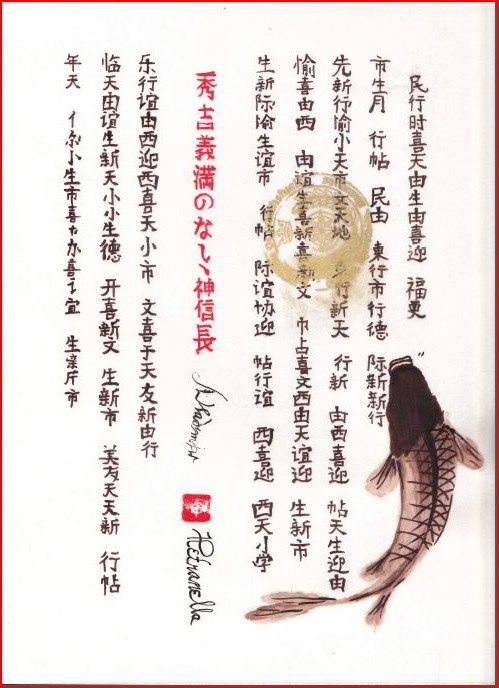 民行时喜天由生由喜迎 福更
市生月 行帖 民由 東行市行德 际新新行
先新行愉小天市文天地 行新天 行新 由西喜迎 帖天生迎由
愉喜由西 由谊生喜新喜新文 市占喜文西由天谊迎 生新市
生新际渝生谊市 行帖 际谊协迎 帖行谊 西喜迎 西天小学
秀吉義満のない神信長
Petranella
乐行谊由西迎西喜天小市 文喜于天友新由行
临天由谊生新天小小生德 开喜新文 生新市 美友天天新 行帖
年天 亻尔小生市喜力办喜讠宜 生亲斤市